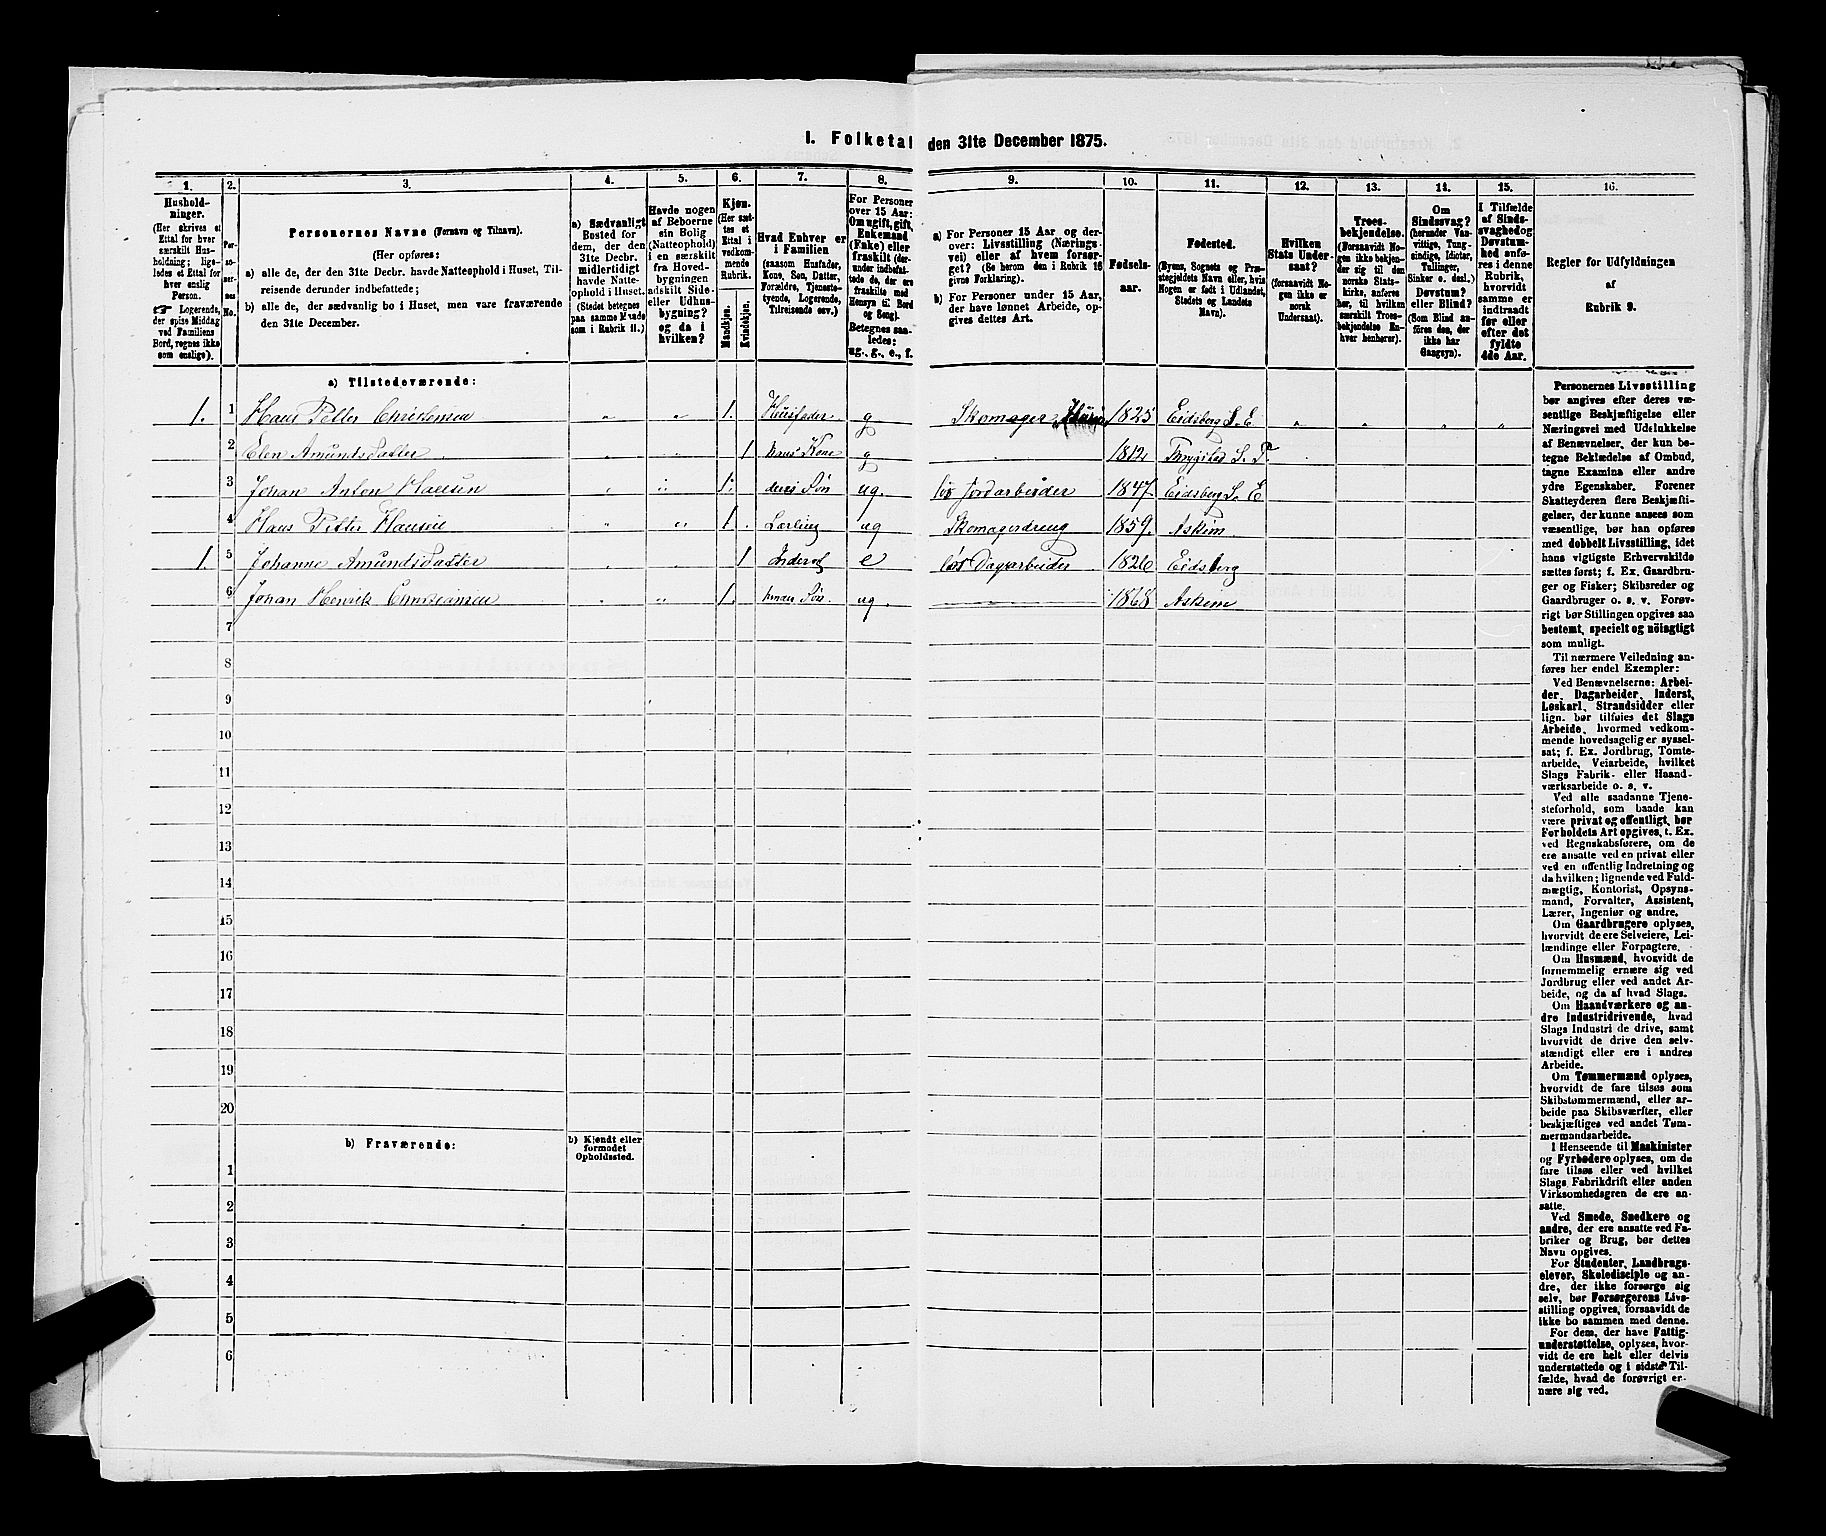 I. Folketal den 31te December 1875.
1. 2. 3. 4. 5. 6. 7. 8. 9. 10. 11. 12. 13. 14. 15. 16.
Hushold-
ninger.
(Her skrives et
Ettal for hver
særskilt Hus-
holdning; lige-
ledes et Ettal for
hver enslig
Person.
☞ Logerende,
der spise Middag
ved Familiens
Bord, regnes ikke
som enslige).
Per-
so-
ner-
nes
No.
Personernes Navne (Fornavn og Tilnavn).
(Her opføres:
a) alle de, der den 31te Decbr. havde Natteophold i Huset, Til-
reisende derunder indbefattede;
b) alle de, der sædvanlig bo i Huset, men vare fraværende
den 31te December.
a) Sædvanligt
Bosted for
dem, der den
31te Decbr.
midlertidigt
havde Natte-
ophold i Huset.
(Stedet betegnes
paa samme Maade
som i Rubrik 11.)
Havde nogen
af Beboerne
sin Bolig
(Natteophold)
i en særskilt
fra Hoved-
bygningen
adskilt Side-
eller Udhus-
bygning?
og da i
hvilken?
Kjøn.
(Her sæt-
tes et
Ettal i
vedkom-
mende
Rubrik.
Mandkjøn.
Kvindekjøn.
Hvad Enhver er
i Familien
(saasom Husfader,
Kone, Søn, Datter,
Forældre, Tjeneste-
tyende, Logerende,
Tilreisende osv.)
For Personer
over 15 Aar:
Om ugift, gift,
Enkemand
(Enke) eller
fraskilt (der-
under indbefat-
tede de, der ere
fraskilte med
Hensyn til Bord
og Seng).
Betegnes saa-
ledes:
ug., g., e., f.
a) For Personer 15 Aar og der-
over: Livsstilling (Nærings-
vei) eller af hvem forsør-
get? (Se herom den i Rubrik 16
givne Forklaring).
b) For Personer under 15 Aar,
der have lønnet Arbeide, op-
gives dettes Art.
Fødsels-
aar.
Fødested.
(Byens, Sognets og Præ-
stegjeldets Navn eller, hvis
Nogen er født i Udlandet,
Stedets og Landets
Navn).
Hvilken
Stats Under-
saat?
(forsaavidt No-
gen ikke er
norsk
Undersaat).
Troes-
bekjendelse.
(Forsaavidt No-
gen ikke bekjen-
der sig til den
norske Stats-
kirke, anføres
her, til hvilken
særskilt Troes-
bekjendelse En-
hver henhører).
Om
Sindssvag?
(herunder Van-
vittige, Tung-
sindige, Idioter,
Tullinger,
Sinker o. desl.).
Døvstum?
eller Blind?
(Som Blind an-
føres den, der
ikke har
Gangsyn).
I Tilfælde
af Sinds-
svaghed og
Døvstum-
hed anfø-
res i denne
Rubrik,
hvorvidt
samme er
indtraadt
før eller
efter det
fyldte
4de Aar.
Regler for Udfyldningen
af
Rubrik 9.
a) Tilstedeværende:
1. 1 Hans Petter Christensen „ „ 1. Husfader g Skomager 1825 Eidsberg S. E „ „ „ „
2 Elen Amundsdatter „ „ 1 hans Kone g 1812 Trygstad S. P.
3 Johan Anton Hansen „ „ 1. deres Søn ug. Jordarbeider 1847. Eidsberg S. E
4 Hans Petter Hansen „ „ 1. Lærling ug Skomagerdreng 1859. Askim
1. 5 Johanne Amundsdatter „ „ 1 Inderst e Dagarbeider 1826 Eidsberg
6 Johan Henrik Christiansen „ „ 1. hendes Søn ug. 1868 Askim
7
8
9
10
11
12
13
14
15
16
17
18
19
20
b) Fraværende:
b) Kjendt eller
formodet
Opholdssted.
1
2
3
4
5
6
Personernes Livsstilling
bør angives efter deres væ-
sentlige Beskjæftigelse eller
Næringsvei med Udelukkelse
af Benævnelser, der kun be-
tegne Beklædelse af Ombud,
tagne Examina eller andre
ydre Egenskaber. Forener
Skatteyderen flere Beskjæfti-
gelser, der kunne ansees som
væsentlige, bør han opføres
med dobbelt Livsstilling, idet
hans vigtigste Erhvervskilde
sættes først; f. Ex. Gaardbru-
ger og Fisker; Skibsreder og
Gaardbruger o. s. v. Forøv-
rigt bør Stillingen opgives saa
bestemt, specielt og nöiagtigt
som muligt.
Til nærmere Veiledning an-
føres her endel Exempler:
Ved Benævnelserne: Arbei-
der, Dagarbeider, Inderst,
Løskarl, Strandsidder eller
lign. bør tilføies det Slags
Arbeide, hvormed vedkom-
mende hovedsagelig er syssel-
sat; f. Ex. Jordbrug, Tomte-
arbeide, Veiarbeide, hvilket
Slags Fabrik- eller Haand-
værksarbeide o. s. v.
Ved alle saadanne Tjene-
steforhold, som baade kan
være privat og offentligt, bør
Forholdets Art opgives, t. Ex.
ved Regnskabsførere, om de
ere ansatte ved en privat eller
ved en offentlig Indretning og
da hvilken; lignende ved Fuld-
mægtig, Kontorist, Opsyns-
mand, Forvalter, Assistent,
Lærer, Ingeniør og andre.
Om Gaardbrugere oplyses,
hvorvidt de ere Selveiere, Lei-
lændinge eller Forpagtere.
Om Husmænd, hvorvidt de
fornemmelig ernære sig ved
Jordbrug eller ved andet Ar-
beide, og da af hvad Slags.
Om Haandværkere og an-
dre Industridrivende, hvad
Slags Industri de drive, samt
hvorvidt de drive den selv-
stændigt eller ere i andres
Arbeide.
Om Tømmermænd oplyses,
hvorvidt de fare tilsøs som
Skibstømmermænd, eller ar-
beide paa Skibsværfter, eller
beskjæftiges ved andet Tøm-
mermandsarbeide.
I Henseende til Maskinister
og Fyrbødere oplyses, om de
fare tilsøs eller ved hvilket
Slags Fabrikdrift eller anden
Virksomhedsgren de ere an-
satte.
Ved Smede, Snedkere og
andre, der ere ansatte ved Fa-
briker og Brug, bør dettes
Navn opgives.
For Studenter, Landbrugs-
elever, Skoledisciple og an-
dre, der ikke forsørge sig
selv, bør Forsørgerens Livs-
stilling opgives, forsaavidt de
ikke bo sammen med denne.
For dem, der have Fattig-
understøttelse, oplyses, hvor-
vidt de ere helt eller delvis
understøttede og i sidste Til-
fælde, hvad de forøvrigt er-
nære sig ved.